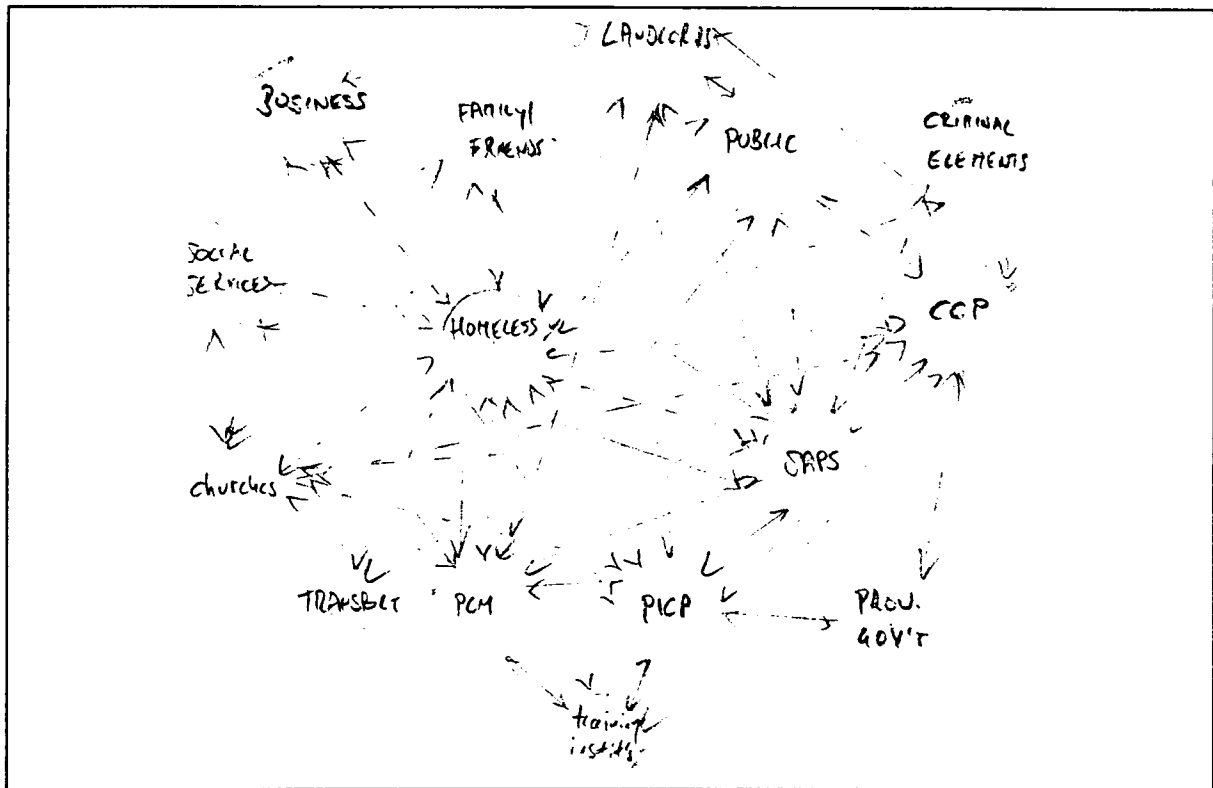 LANDLORDS
BUSINESS
FAMILY/
FRIENDS
PUBLIC
CRIMINAL
ELEMENTS
SOCIAL
SERVICES
HOMELESS
CGP
SAPS
churches
TRANSPORT
PCM
PICP
PROV.
GOV'T
training
instit's